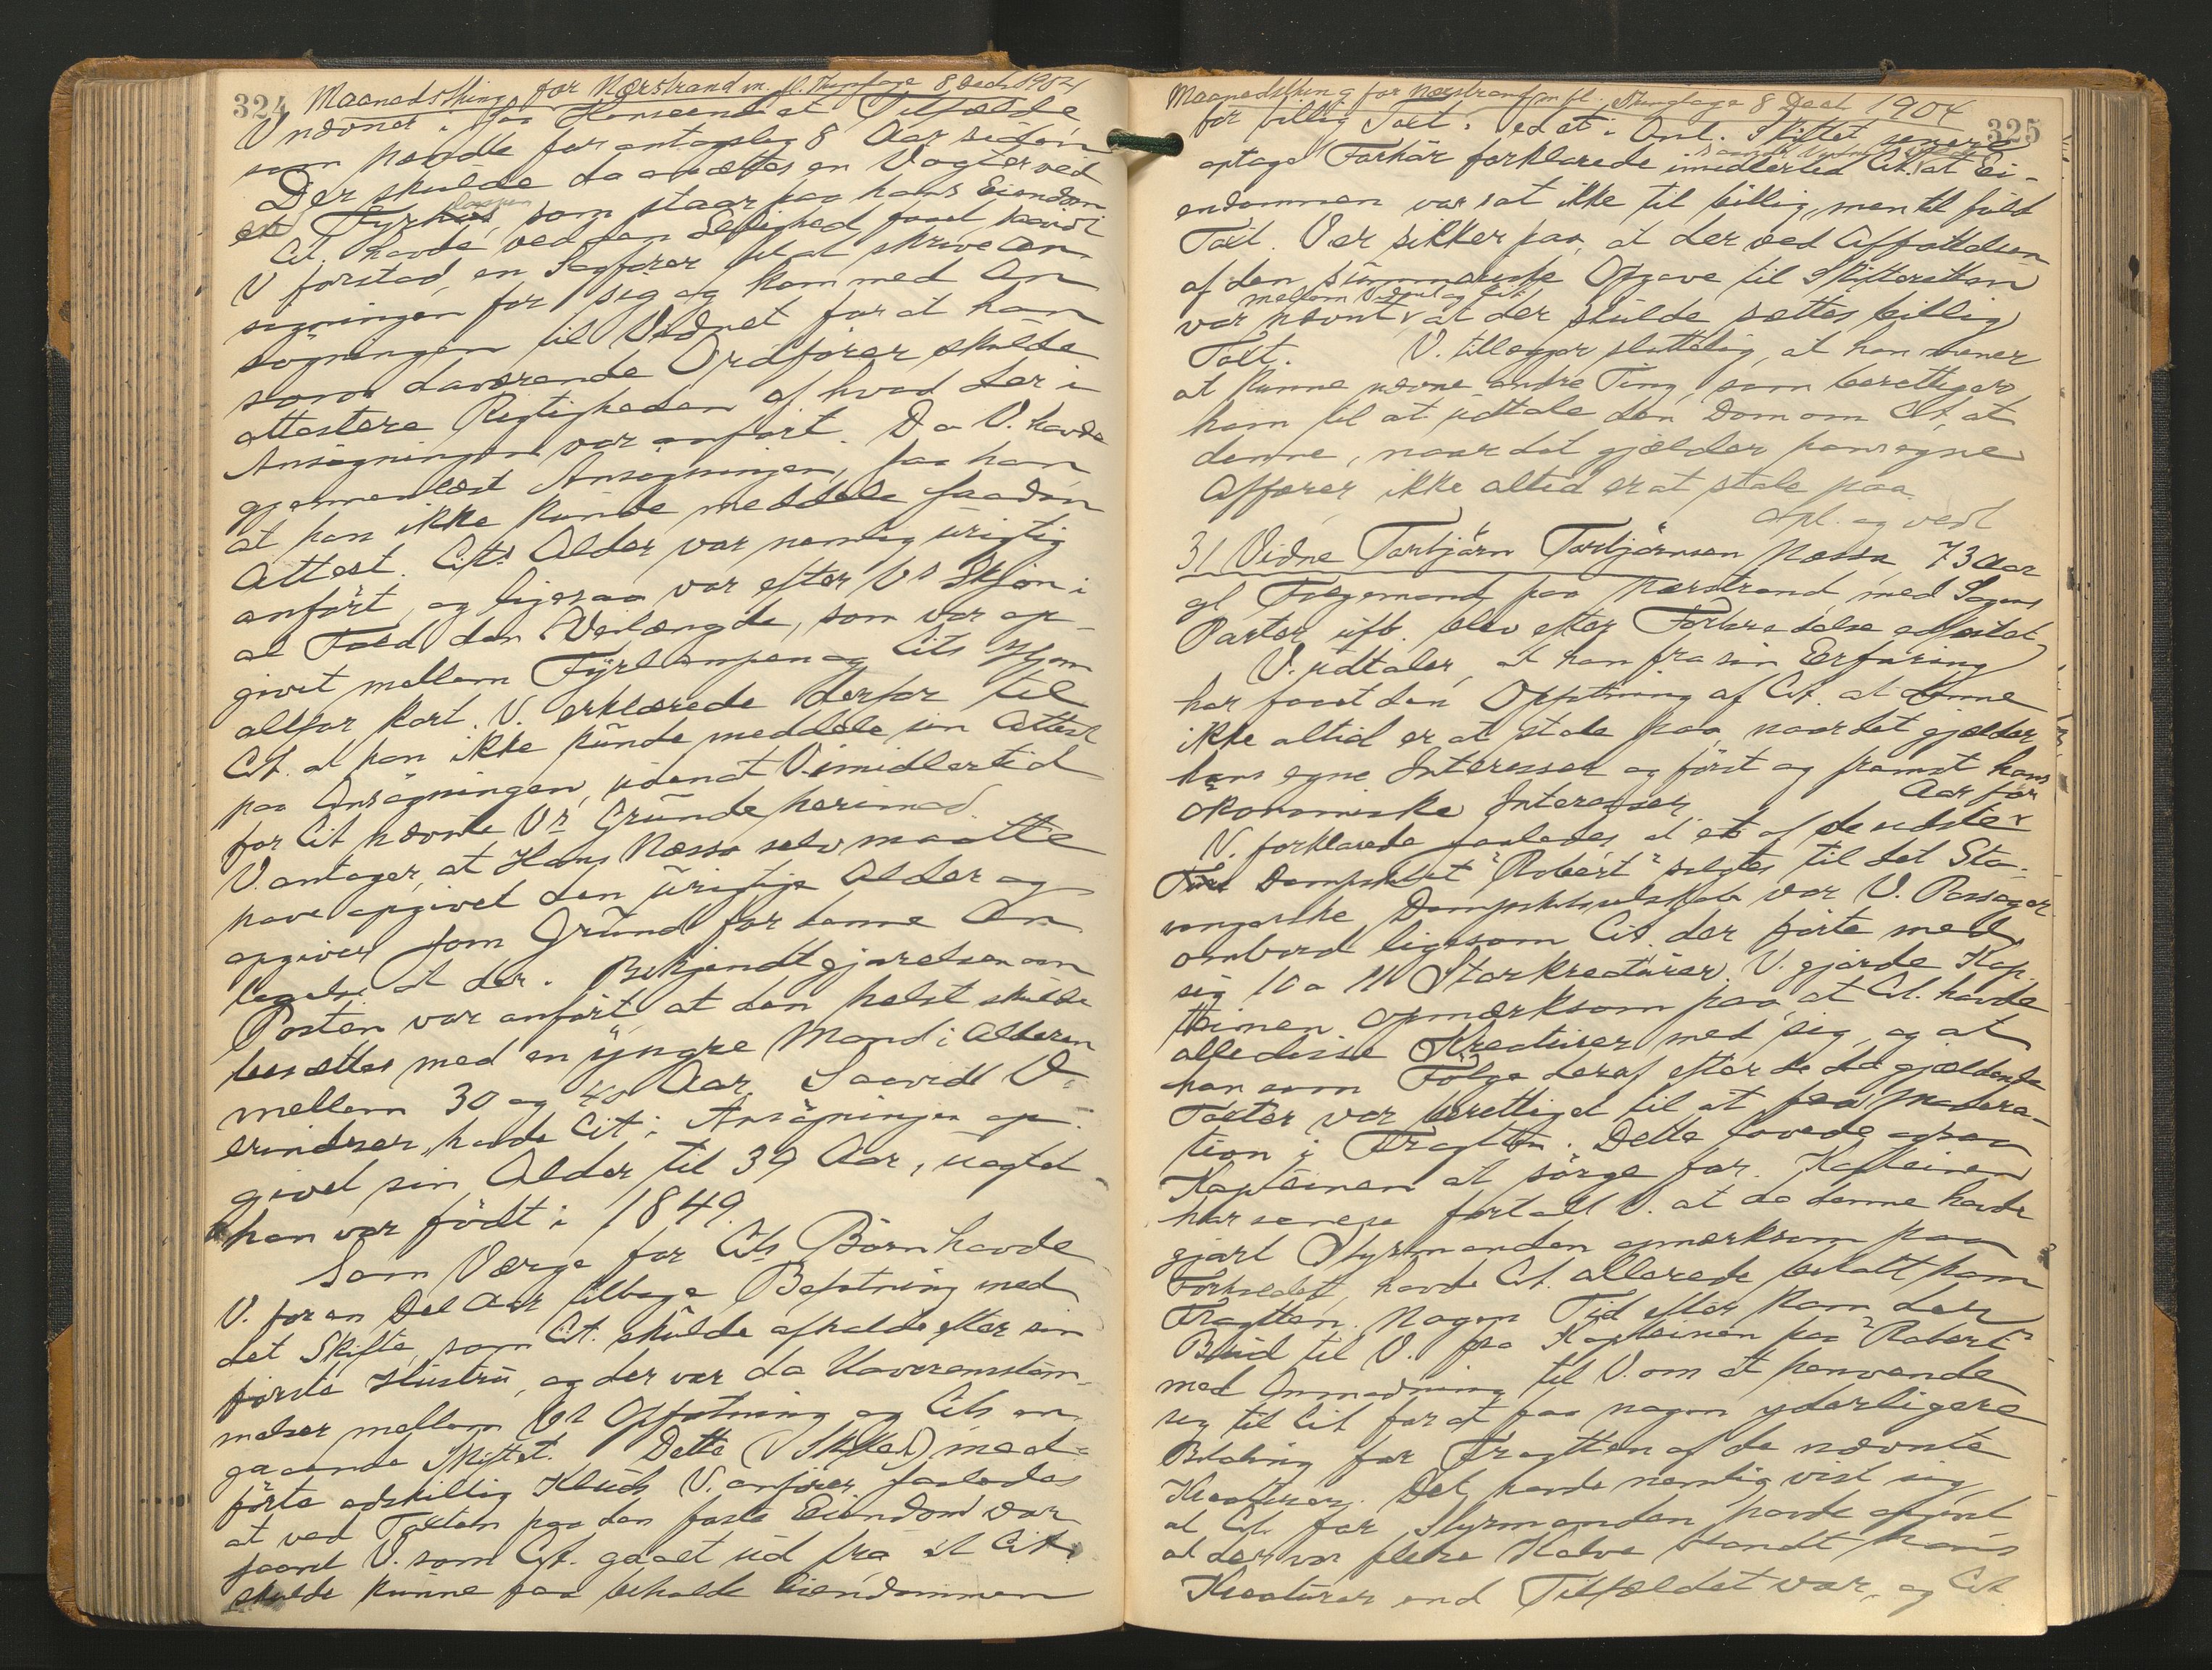 324 Maanedsthing for Nærstrand m. fl. Thinglage 8 Decb 1904
V. nævner i saa Henseende et Tilfælde
som hændte for antagelig 8 Aar siden
Der skulde da ansættes en Vogter ved
en Fyrlampen, som staar paa hans Eiendom
Cit. havde ved den Leilighed faaet
V forstod, en Sagfører til at skrive An
søgningen for sig og kom med An
søgningen til Vidnet for at han
som daværende Ordfører skulde
attestere Rigtigheden af hvad der i
Ansøgningen var anført. Da V. havde
gjennemlæst Ansøgningen, saa han
at han ikke kunde meddele saadan
Attest. Cits Alder var nemlig urigtig
anført, og ligesaa var efter Vs Skjøn i
al Fald den Veilængde, som var op-
givet mellem Fyrlampen og Cits Hjem
altfor kort. V. erklærede derfor til
Cit. at han ikke kunde meddele sin Attest
paa Ansøgningen, uden at V. imidlertid
for Cit nævnte Vs Grunde herimod.
V. antager, at Hans Næssa selv maatte
have opgivet den urigtige Alder og
opgiver som Grund for denne An
tagelse at der i Bekjendtgjørelsen om
Posten var anført at den helst skulde
besættes med en yngre Mand i Alderen
mellem 30 og 40 Aar. Saavidt V.
erindrer, havde Cit. i Ansøgningen op-
givet sin Alder til 39 Aar, uagtet
han var født i 1849.
Som Værge for Cits Børn havde
V. for en Del Aar tilbage Befatning med
det Skifte, som Cit. skulde afholde efter sin
første Hustru, og der var da Uoverensstem-
melser mellem Vs Opfatning og Cits an-
gaaende Skiftet. Dette (Skiftet) med-
førte adskillig Kluds V. anfører saaledes
at ved Taxten paa den faste Eiendom var
saavel V. som Cit. gaaet ud fra at Cit.
skulde kunne faa beholde Eiendommen
Maanedsthing for Nærstrand m fl. Thinglage 8 Decb 1904
325
for billig Taxt. Ved et i Anl. Skiftet senere
optaget Forhør forklarede imidlertid Cit. at Ei-
endommen var sat ikke til billig, men til fuld
Taxt. V er sikker paa, at der ved Affattelsen
af den summariske Opgave til Skifteretten
mellem Vidnet og Cit.
var nævnt at der skulde sættes billig
Taxt. V. tillægger sluttelig, at han mener
at kunne nævne andre Ting, som berettiger
ham til at udtale den Dom om Cit., at
denne, naar det gjælder hans egne
Affærer, ikke altid er at stole paa.
Opl. og vedt
31 Vidne Torbjørn Torbjørnsen Næssa, 73 Aar
gl Fægemand paa Nærstrand med Sagens
Parter ub. blev efter Forberedelse edfæstet
V. udtaler, at han fra sin Erfaring
har faaet den Opfatning af Cit. at denne
ikke altid er at stole paa, naar det gjælder
hans egne Interesser og først og fremst hans
økonomiske Interesser
Aar før
V. forklarede saaledes at et af de sidste
Dampskibet "Robert" solgtes til det Sta-
vangerske Dampskibsselskab var V. Passager
ombord ligesom Cit. der førte med
sig 10 a 11 Storkreaturer. V. gjorde Kap-
teinen opmerksom paa, at Cit. havde
alle disse Kreaturer med sig, og at
han som Følge deraf efter de da gjældende
Taxter var berettiget til at faa Modera-
tion i Fragten. Dette lovede ogsaa
Kapteinen at sørge for. Kapteinen
har senere fortalt V. at da denne havde
gjort Styrmanden opmærksom paa
Forholdet, havde Cit. allerede betalt ham
Fragten. Nogen Tid efter kom der
Bud til V. fra Kapteinen paa "Robert"
med Anmodning til V. om at henvende
sig til Cit for at faa nogen yderligere
Betaling for Fragten af de nævnte
Kreaturer. Det havde nemlig vist sig,
at Cit. for Styrmanden havde opgivet
at der var flere Kalve blandt hans
Kreaturer end Tilfældet var, og Cit.